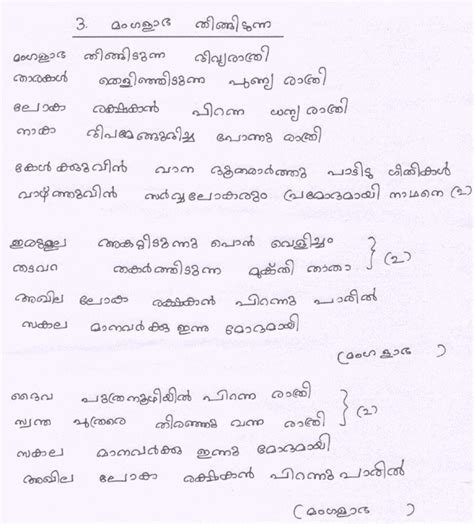 3. മംഗളാഭ തിങ്ങിടുന്ന
മംഗളാഭ തിങ്ങിടുന്ന ദിവ്യരാത്രി
താരകൾ തെളിഞ്ഞിടുന്ന പുണ്യ രാത്രി
ലോകാ രക്ഷകാൻ പിറന്ന ധന്യ രാത്രി
നാകാ ദീപമേങ്ങുദിച്ച പോന്നു രാത്രി
കേൾക്കുവിൻ വാന ദൂതരാർത്തു പാടിടു ഗീതികൾ
വാഴ്ത്തുവിൻ സർവ്വലോകരും പ്രമോദമായി നാഥനെ (2)
ഇരുളല അകറ്റിടുന്നു പൊൻ വെളിച്ചം
തടവറ തകർത്തിടുന്ന മുക്തി താതാ } (2)
അഖില ലോകാ രക്ഷകാൻ പിറന്നു പാരിൽ
സകാല മാനവർക്കു ഇന്നു മോദമായി
(മംഗളാഭ )
ദൈവ പുത്രനൂഴിയിൽ പിറന്ന രാത്രി
സ്വന്ത പുത്രരെ തിരഞ്ഞു വന്ന രാത്രി } (2)
സകാല മാനവർക്കു ഇന്നു മോദമായി
അഖില ലോകാ രക്ഷകാൻ പിറന്നു പാരിൽ
(മംഗളാഭ )